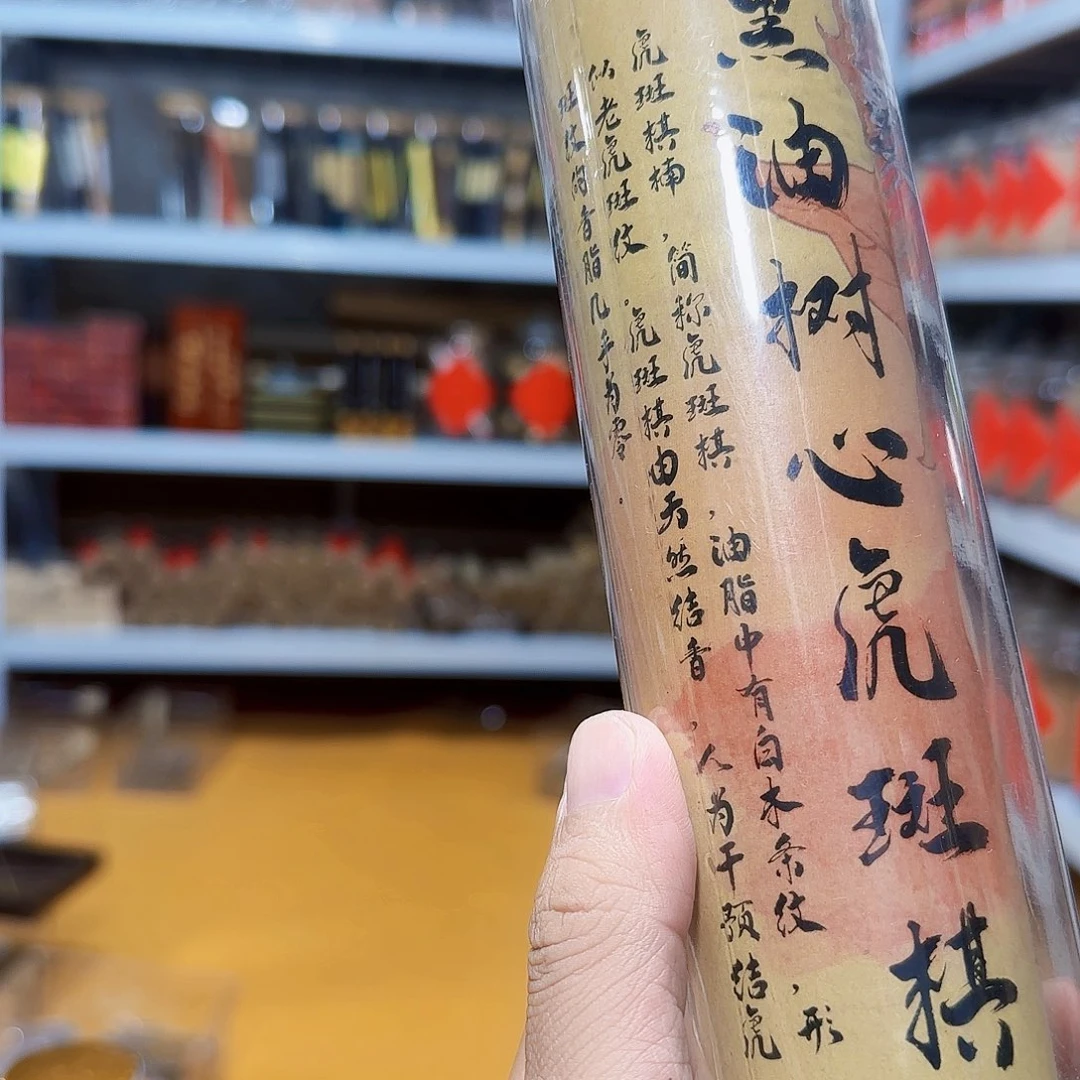 黑油树心虎斑棋
虎斑棋楠，简称虎斑棋，油脂中有白木条纹，形
似老虎斑纹。虎斑棋由天然结香，人为干预结虎
斑纹的香脂几乎为零.